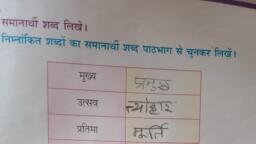 समानार्थी शब्द लिखें।
निम्नांकित शब्दों का समानार्थी शब्द पाठभाग से चुनकर लिखें।
मुख्य प्रमुख
उत्सव त्योहार
प्रतिमा मूर्ति